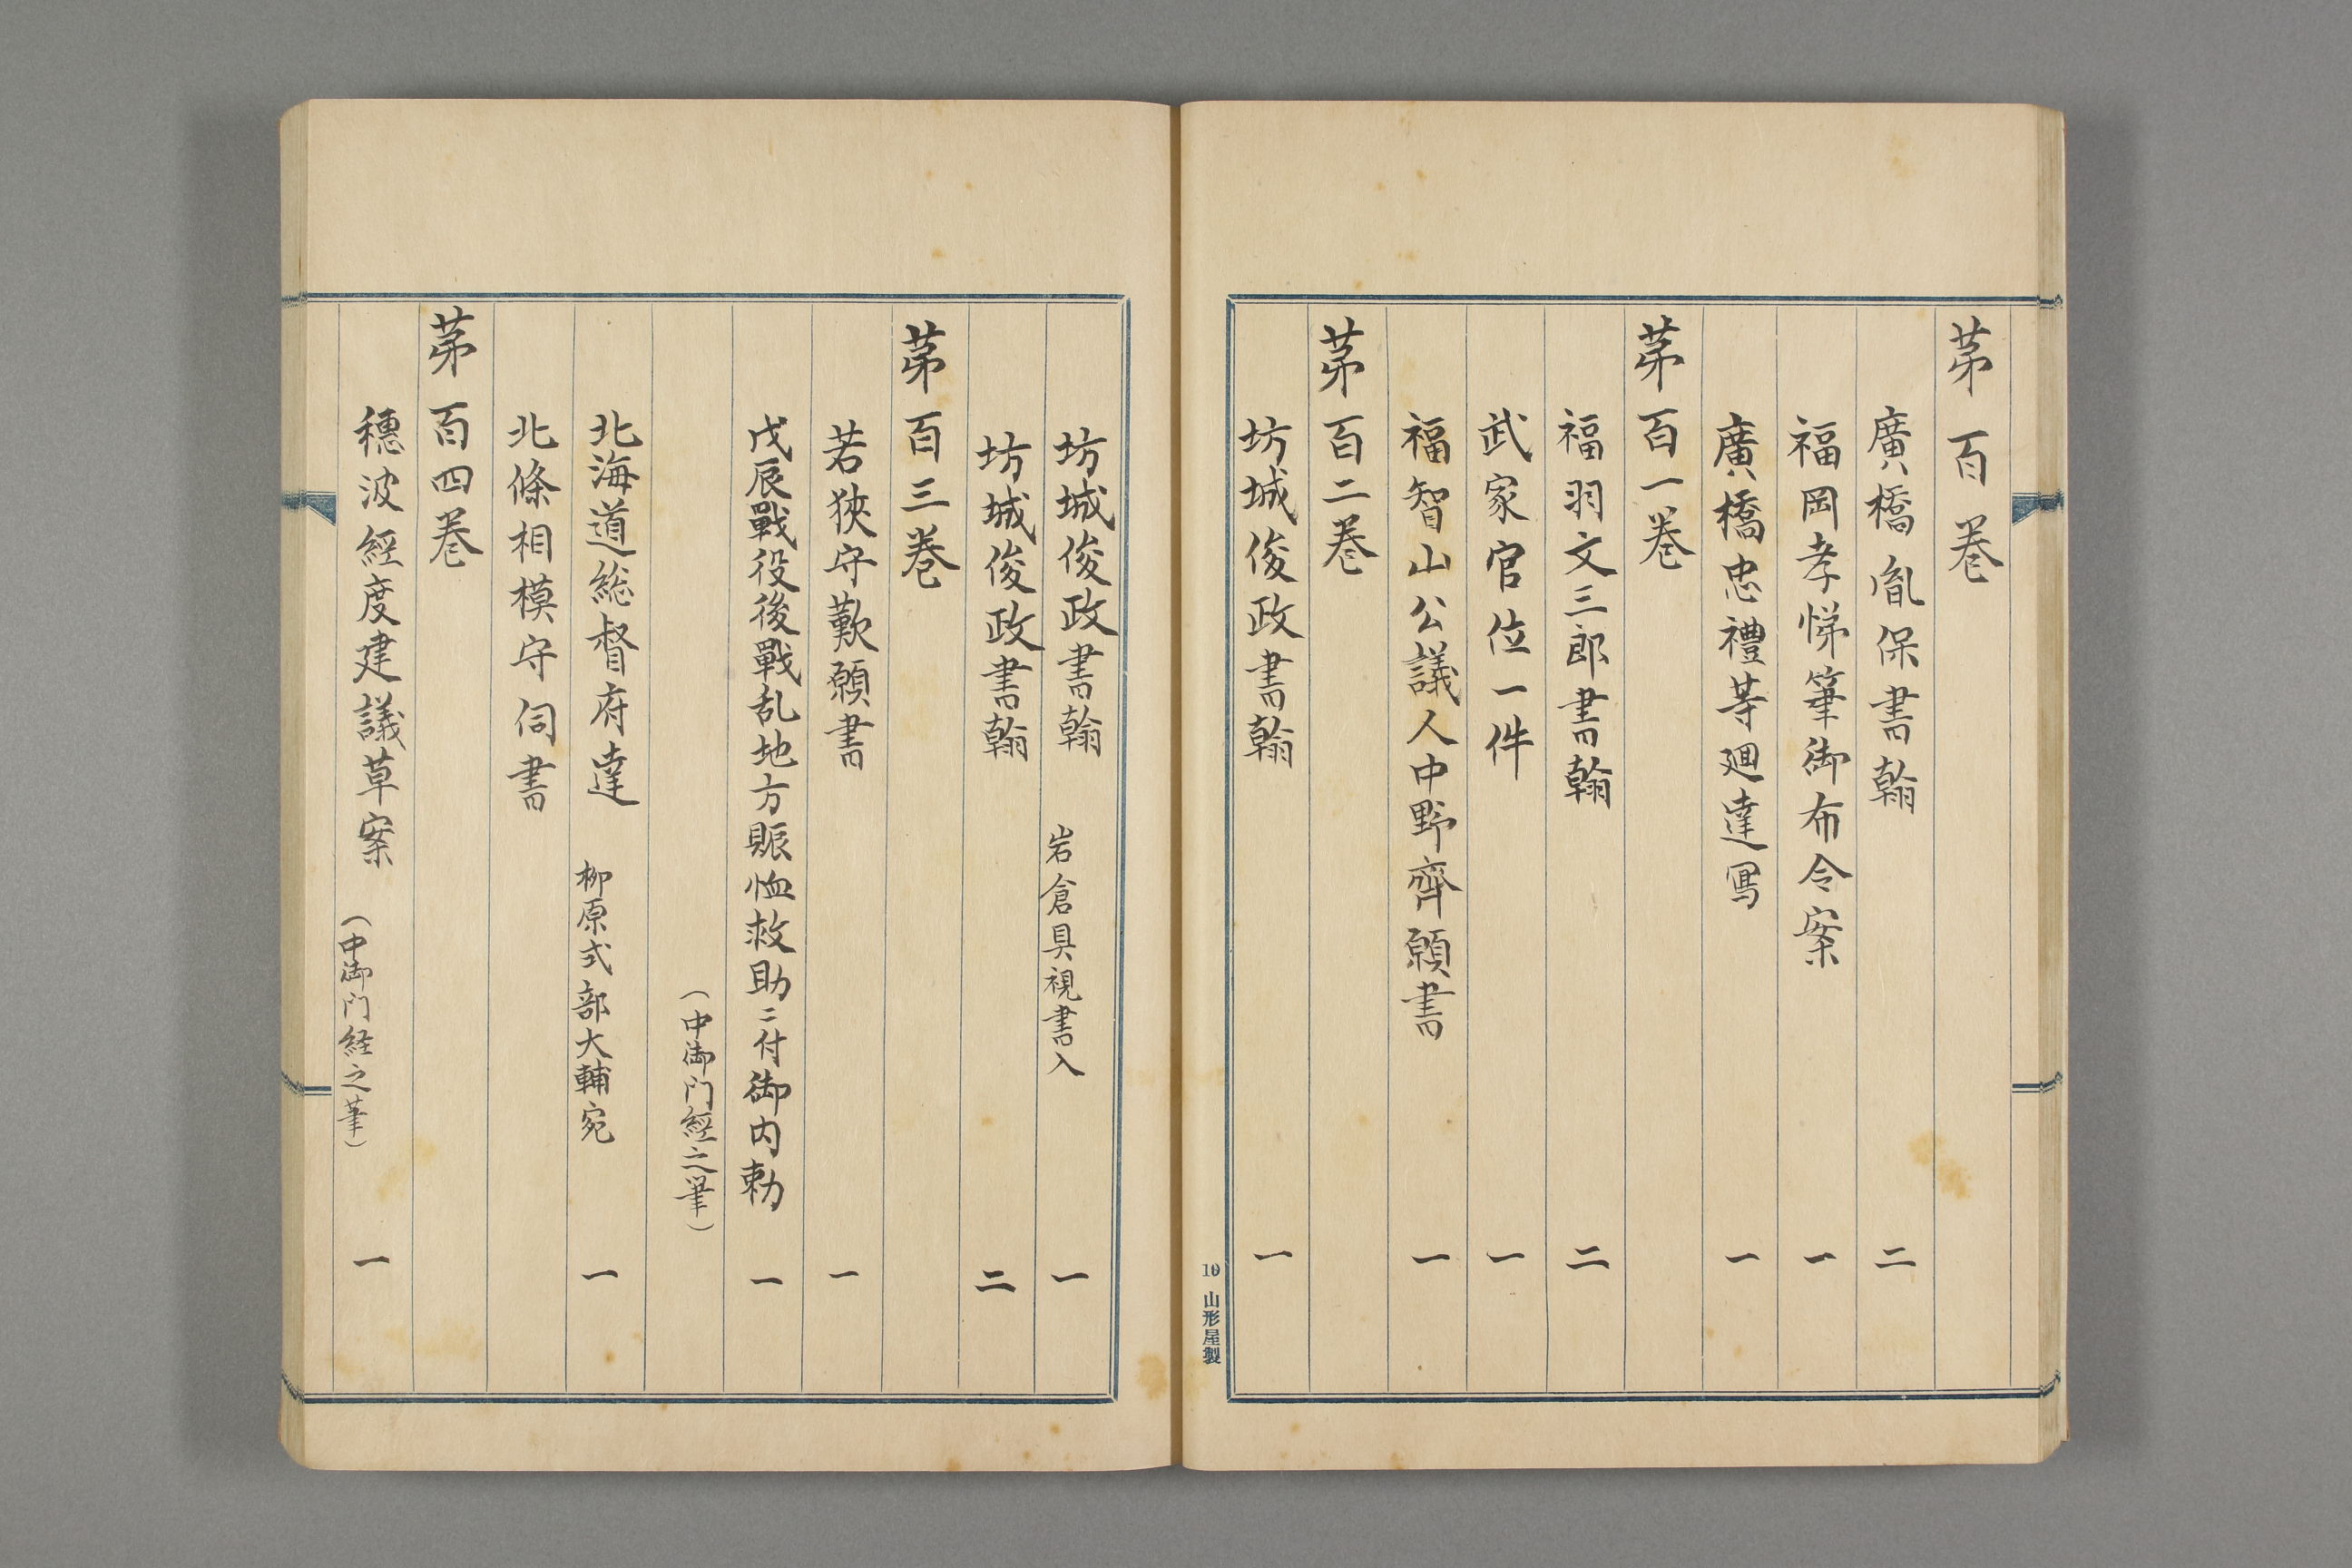 第百巻
廣橋胤保書翰 二
福岡孝悌筆御布令案 一
廣橋忠禮等廻達写 一
第百一巻
福羽文三郎書翰 二
武家官位一件 一
福智山公議人中野齊願書 一
第百二巻
坊城俊政書翰 一
10 山形屋製
坊城俊政書翰 岩倉具視書入 一
坊城俊政書翰 二
第百三巻
若狹守歎願書 一
戊辰戰役後戰乱地方賑恤救助ニ付御内勅 一
(中御門經之筆)
北海道総督府達 柳原式部大輔宛 一
北條相模守伺書
第百四巻
穗波經度建議草案 (中御門経之筆) 一